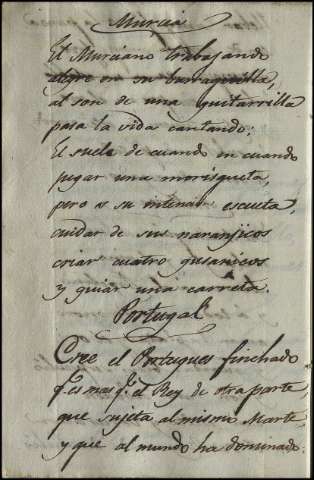 Murcia
El Murciano trabajando
alegre en su barraquilla,
al son de una guitarrilla
pasa la vida cantando;
El suele de cuando en cuando
jugar una morisqueta,
pero es su intencion escueta,
cuidar de sus naranjicos
criar cuatro gusanicos
y guiar una carreta.
Portugal
Cree el Portugues finchado
q.e es mas q.e el Rey de otra parte,
que sujeta al mismo Marte,
y que al mundo ha dominado: